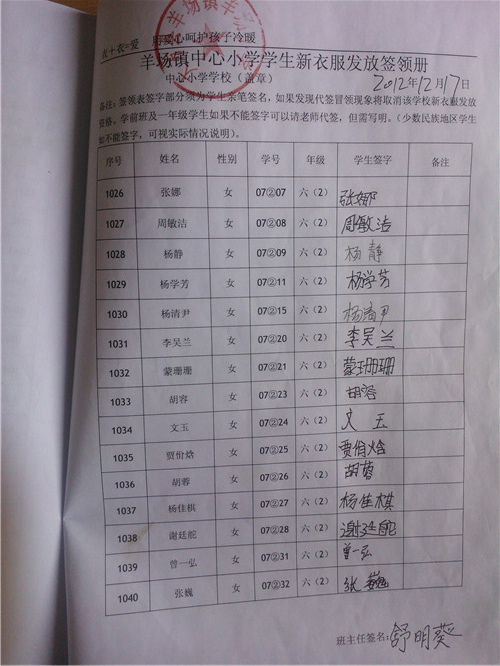 衣+衣=爱 用爱心呵护孩子冷暖
羊场镇中心小学学生新衣服发放签领册
中心小学学校（盖章） 2012年12月17日
备注：签领表签字部分须为学生亲笔签名，如果发现代签冒领现象将取消该学校新衣服发放
资格，学前班及一年级学生如果不能签字可以请老师代签，但需写明。（少数民族地区学生
如不能签字，可视实际情况说明）。
序号 姓名 性别 学号 年级 学生签字 备注
1026 张娜 女 07②07 六（2） 张娜
1027 周敏洁 女 07②08 六（2） 周敏洁
1028 杨静 女 07②09 六（2） 杨静
1029 杨学芳 女 07②11 六（2） 杨学芳
1030 杨清尹 女 07②15 六（2） 杨清尹
1031 李吴兰 女 07②20 六（2） 李吴兰
1032 蒙珊珊 女 07②21 六（2） 蒙珊珊
1033 胡容 女 07②23 六（2） 胡容
1034 文玉 女 07②24 六（2） 文玉
1035 贾俏焓 女 07②25 六（2） 贾俏焓
1036 胡蓉 女 07②26 六（2） 胡蓉
1037 杨佳棋 女 07②27 六（2） 杨佳棋
1038 谢廷舵 女 07②28 六（2） 谢廷舵
1039 曾一弘 女 07②31 六（2） 曾一弘
1040 张巍 女 07②32 六（2） 张巍
班主任签名：舒明葵